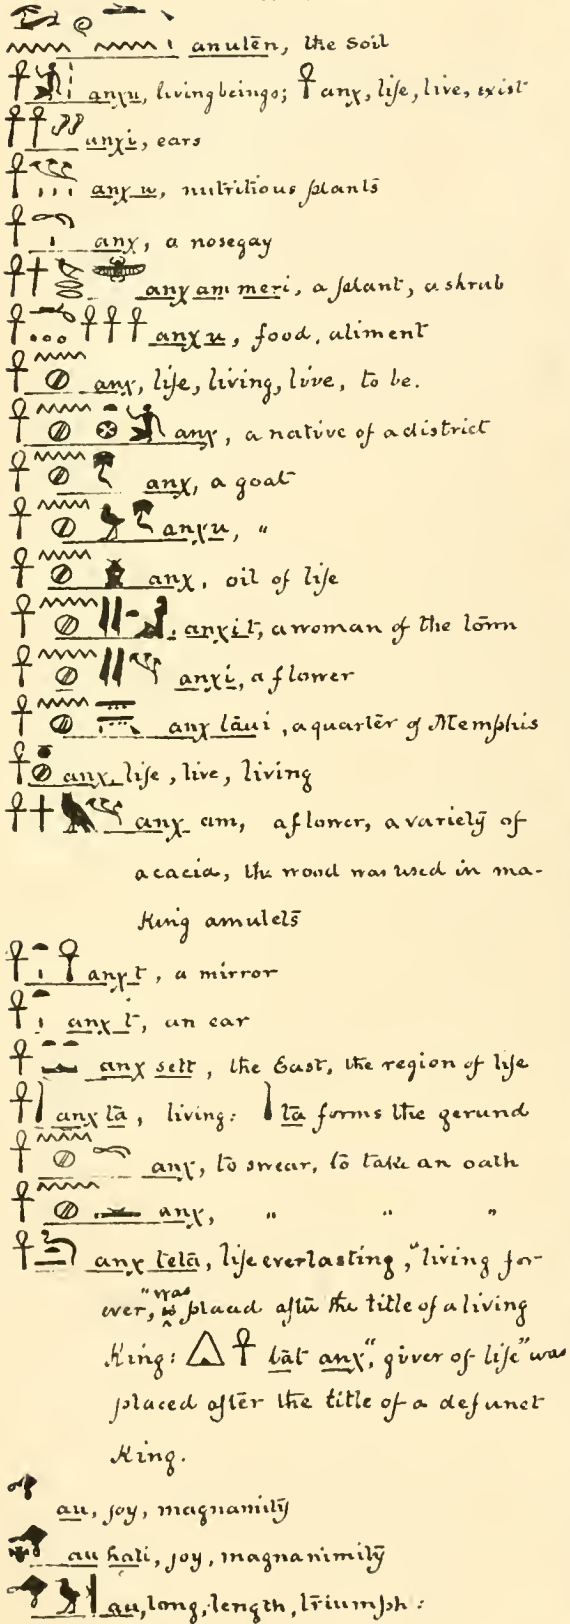 anutēn, the soil
anχu, living beings; ☥ anχ, life, live, exist
anχi, ears
anχ u, nutritious plants
anχ, a nosegay
anχ am meri, a plant, a shrub
anχ u, food, aliment
anχ, life, living, live, to be.
anχ, a native of a district
anχ, a goat
anχu, "
anχ, oil of life
anχit, a woman of the town
anχi, a flower
anχ tāui, a quarter of Memphis
anχ, life, live, living
anχ am, a flower, a variety of
acacia, the wood was used in ma-
king amulets
anχ t, a mirror
anχ t, an ear
anχ sett, the East, the region of life
anχ tā, living: tā forms the gerund
anχ, to swear, to take an oath
anχ, " " "
anχ tetā, life everlasting, "living for-
ever," was placed after the title of a living
King: △ ☥ tāt anχ "giver of life" was
placed after the title of a defunct
King.
au, joy, magnamity
au hati, joy, magnanimity
au, long, length, triumph: